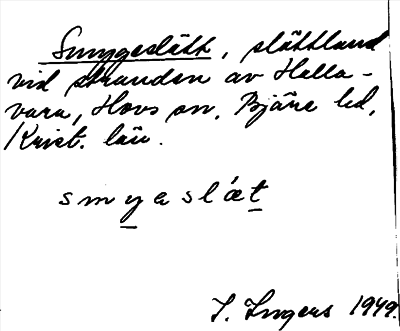 Smygeslätt, slättland
vid stranden av Halla-
vara, Hovs sn, Bjäre hd,
Krist. län.
smyaslǽt
I. Ingers 1949.